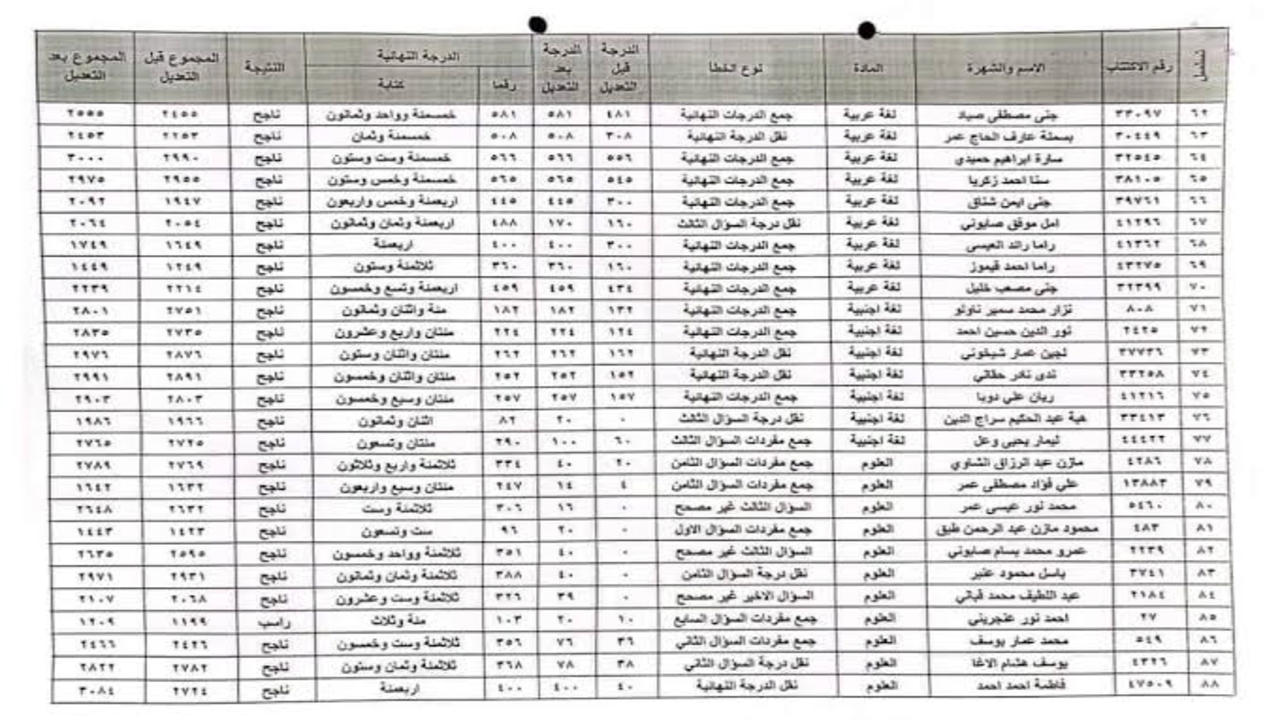 تسلسل رقم الاكتتاب الاسم والشهرة المادة نوع الخطا الدرجة قبل التعديل الدرجة بعد التعديل الدرجة النهائية رقما كتابة النتيجة المجموع قبل التعديل المجموع بعد التعديل
٦٢ ٣٣٠٩٧ جنى مصطفى صياد لغة عربية جمع الدرجات النهائية ٤٨١ ٥٨١ ٥٨١ خمسمئة وواحد وثمانون ناجح ٢٤٥٥ ٢٥٥٥
٦٣ ٣٠٤٤٩ بسملة عارف الحاج عمر لغة عربية نقل الدرجة النهائية ٣٠٨ ٥٠٨ ٥٠٨ خمسمئة وثمان ناجح ٢٢٥٣ ٢٤٥٣
٦٤ ٣٢٥٤٥ سارة ابراهيم حميدي لغة عربية جمع الدرجات النهائية ٥٥٦ ٥٦٦ ٥٦٦ خمسمئة وست وستون ناجح ٢٩٩٠ ٣٠٠٠
٦٥ ٣٨١٠٥ سنا احمد زكريا لغة عربية جمع الدرجات النهائية ٥٤٥ ٥٦٥ ٥٦٥ خمسمئة وخمس وستون ناجح ٢٩٥٥ ٢٩٧٥
٦٦ ٣٩٧٦١ جنى ايمن شناق لغة عربية جمع الدرجات النهائية ٣٠٠ ٤٤٥ ٤٤٥ اربعمئة وخمس واربعون ناجح ١٩٤٧ ٢٠٩٢
٦٧ ٤١٢٩٦ امل موفق صابوني لغة عربية نقل درجة السؤال الثالث ١٦٠ ١٧٠ ٤٨٨ اربعمئة وثمان وثمانون ناجح ٢٠٥٤ ٢٠٦٤
٦٨ ٤١٣٦٢ راما رائد العيسى لغة عربية جمع الدرجات النهائية ٣٠٠ ٤٠٠ ٤٠٠ اربعمئة ناجح ١٦٤٩ ١٧٤٩
٦٩ ٤٣٢٧٥ راما احمد قيموز لغة عربية جمع الدرجات النهائية ١٦٠ ٣٦٠ ٣٦٠ ثلاثمئة وستون ناجح ١٢٤٩ ١٤٤٩
٧٠ ٣٢٣٩٩ جنى مصعب خليل لغة عربية جمع الدرجات النهائية ٤٣٤ ٤٥٩ ٤٥٩ اربعمئة وتسع وخمسون ناجح ٢٢١٤ ٢٢٣٩
٧١ ٨٠٨ نزار محمد سمير ناولو لغة اجنبية جمع الدرجات النهائية ١٣٢ ١٨٢ ١٨٢ مئة واثنان وثمانون ناجح ٢٧٥١ ٢٨٠١
٧٢ ٢٤٢٥ نور الدين حسين احمد لغة اجنبية جمع الدرجات النهائية ١٢٤ ٢٢٤ ٢٢٤ مئتان واربع وعشرون ناجح ٢٧٣٥ ٢٨٣٥
٧٣ ٣٧٧٣٦ لجين عمار شيخوني لغة اجنبية نقل الدرجة النهائية ١٦٢ ٢٦٢ ٢٦٢ مئتان واثنان وستون ناجح ٢٨٧٦ ٢٩٧٦
٧٤ ٣٣٢٥٨ ندى نادر حقاني لغة اجنبية نقل الدرجة النهائية ١٥٢ ٢٥٢ ٢٥٢ مئتان واثنان وخمسون ناجح ٢٨٩١ ٢٩٩١
٧٥ ٤١٢١٦ ريان علي دوبا لغة اجنبية جمع الدرجات النهائية ١٥٧ ٢٥٧ ٢٥٧ مئتان وسبع وخمسون ناجح ٢٨٠٣ ٢٩٠٣
٧٦ ٣٣٤١٣ هبة عبد الحكيم سراج الدين لغة اجنبية نقل درجة السؤال الثالث ٠ ٢٠ ٨٢ اثنان وثمانون ناجح ١٩٦٦ ١٩٨٦
٧٧ ٤٤٤٢٢ ليمار يحيى وعل لغة اجنبية جمع مفردات السؤال الثالث ٦٠ ١٠٠ ٢٩٠ مئتان وتسعون ناجح ٢٧٢٥ ٢٧٦٥
٧٨ ٤٢٨٦ مازن عبد الرزاق الشاوي العلوم جمع مفردات السؤال الثامن ٢٠ ٤٠ ٣٣٤ ثلاثمئة واربع وثلاثون ناجح ٢٧٦٩ ٢٧٨٩
٧٩ ١٣٨٨٣ علي فؤاد مصطفى عمر العلوم جمع مفردات السؤال الثامن ٤ ١٤ ٢٤٧ مئتان وسبع واربعون ناجح ١٦٣٢ ١٦٤٢
٨٠ ٥٤٦٠ محمد نور عيسى عمر العلوم السؤال الثالث غير مصحح ٠ ١٦ ٣٠٦ ثلاثمئة وست ناجح ٢٦٣٢ ٢٦٤٨
٨١ ٤٨٣ محمود مازن عبد الرحمن طبق العلوم جمع مفردات السؤال الاول ٠ ٢٠ ٩٦ ست وتسعون ناجح ١٤٢٣ ١٤٤٣
٨٢ ٢٢٣٩ عمرو محمد بسام صابوني العلوم السؤال الثالث غير مصحح ٠ ٤٠ ٣٥١ ثلاثمئة وواحد وخمسون ناجح ٢٥٩٥ ٢٦٣٥
٨٣ ٣٧٤١ باسل محمود عنبر العلوم نقل درجة السؤال الثامن ٠ ٤٠ ٣٨٨ ثلاثمئة وثمان وثمانون ناجح ٢٩٣١ ٢٩٧١
٨٤ ٢١٨٤ عبد اللطيف محمد قباني العلوم السؤال الاخير غير مصحح ٠ ٣٩ ٣٢٦ ثلاثمئة وست وعشرون ناجح ٢٠٦٨ ٢١٠٧
٨٥ ٢٧ احمد نور عنجريني العلوم جمع مفردات السؤال السابع ١٠ ٢٠ ١٠٣ مئة وثلاث راسب ١١٩٩ ١٢٠٩
٨٦ ٥٤٩ محمد عمار يوسف العلوم جمع مفردات السؤال الثاني ٣٦ ٧٦ ٣٥٦ ثلاثمئة وست وخمسون ناجح ٢٤٢٦ ٢٤٦٦
٨٧ ٤٣٢٦ يوسف هشام الاغا العلوم نقل درجة السؤال الثاني ٣٨ ٧٨ ٣٦٨ ثلاثمئة وثمان وستون ناجح ٢٧٨٢ ٢٨٢٢
٨٨ ٤٧٥٠٩ فاطمة احمد احمد العلوم نقل الدرجة النهائية ٤٠ ٤٠٠ ٤٠٠ اربعمئة ناجح ٢٧٢٤ ٣٠٨٤